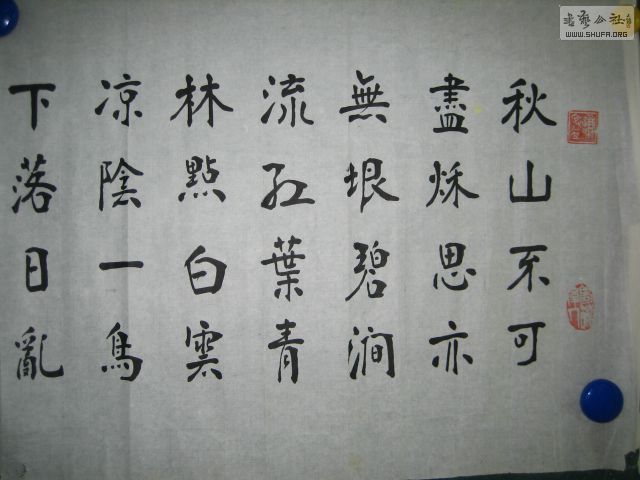 秋山不可
盡秌思亦
無垠碧澗
流紅葉青
林點白雲
凉陰一鳥
下落日亂
書藝公社
WWW.SHUFA.ORG